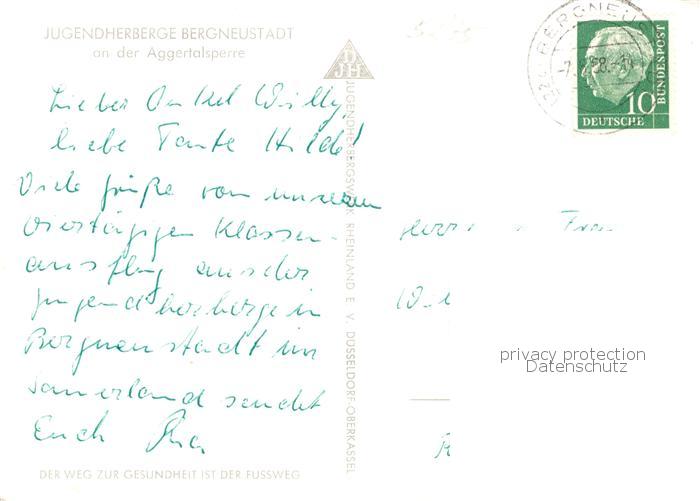 JUGENDHERBERGE BERGNEUSTADT
an der Aggertalsperre
Lieber Onkel Willy,
liebe Tante Hilde!
Viele Grüße von unserem
viertägigen Klassen-
ausflug aus der
Jugendherberge in
Bergneustadt im
Sauerland sendet
Euch
DER WEG ZUR GESUNDHEIT IST DER FUSSWEG
DJH
JUGENDHERBERGSWERK RHEINLAND E. V. DÜSSELDORF-OBERKASSEL
BERGNEUS
58
10
DEUTSCHE
BUNDESPOST
Herrn Frau
privacy protection
Datenschutz